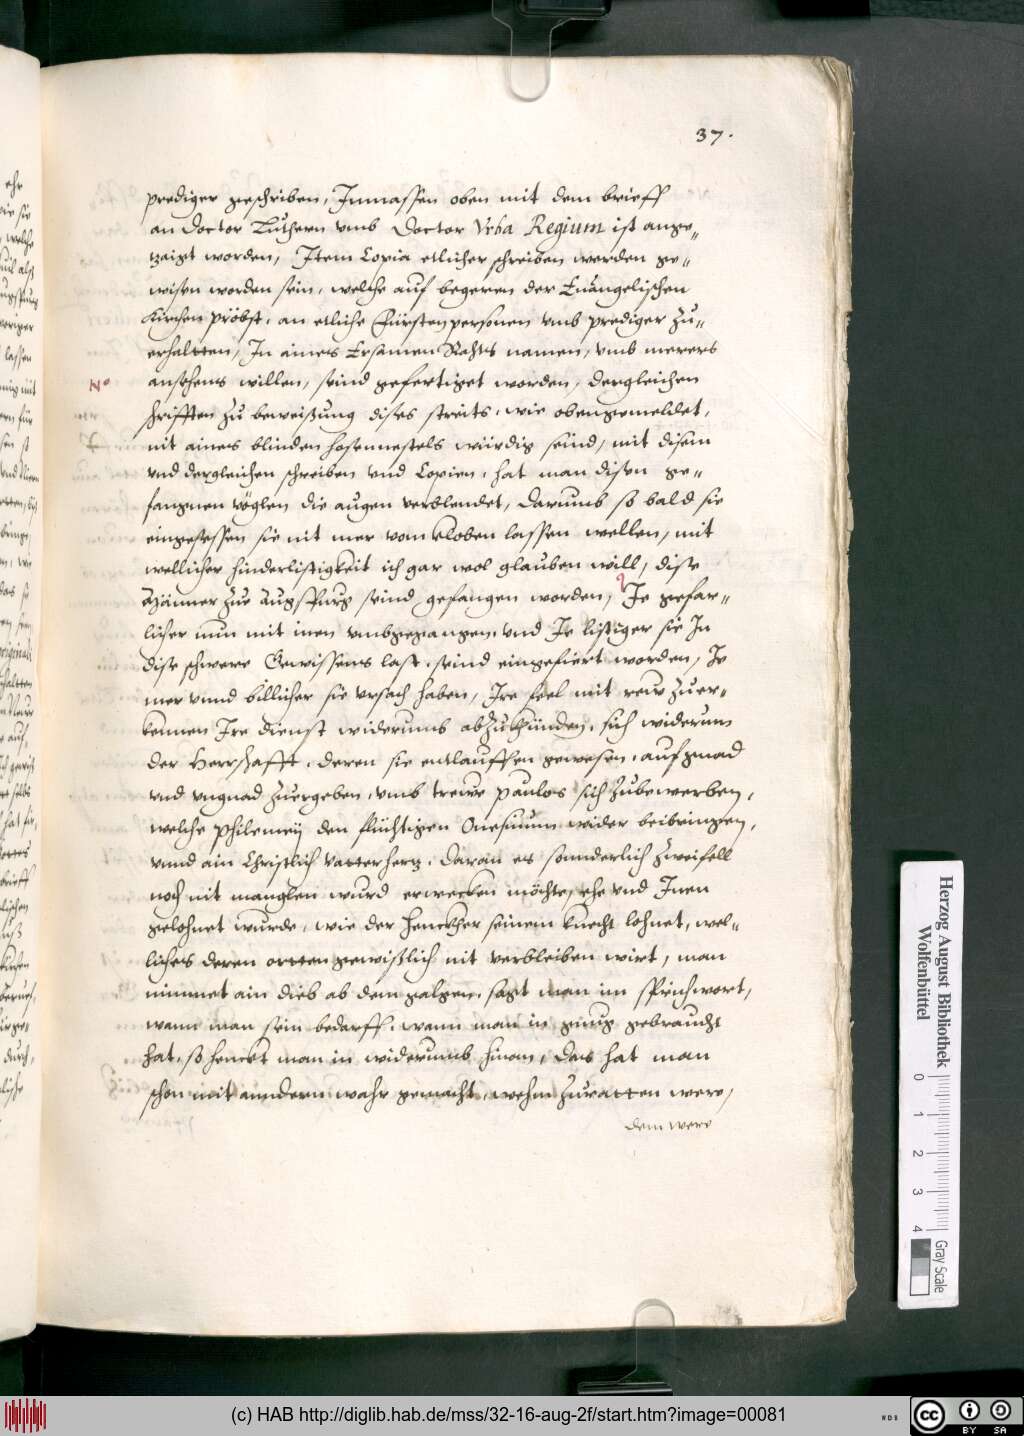 37.
prediger geschriben, Inmassen oben mit dem brieff
an Doctor Luthern vmb Doctor Vrba Regium ist ange„
tzaigt worden, Item Copia etlicher schreiben werden ge„
wisen worden sein, welche auf begeren der Euangelischen
Kirchen pröbst, an etliche Fürsten personen vmb prediger zu„
erhaltten, In aines Ersamen Rahts namen, vmb merers
No
ansehens willen, seind gefertiget worden, dergleichen
schrifften zu beweisung dises streits, wie obengemeldet,
nit aines blinden hosennestels würdig seind, mit disen
vnd dergleichen schreiben vnd Copien, hat man disen ge„
fangnen vöglen die augen verblendet, darumb so bald sie
eingesessen sie nit mer vom kloben lassen wellen, mit
wellicher hinderlistigkeit ich gar wol glauben will, dise
Männer zue Augspurg seind gefangen worden, Je gefar„
licher nun mit inen vmbgegangen, vnd Je listiger sie In
dise schwere Gewissens last, seind eingefiert worden, Je
mer vnnd billicher sie vrsach haben, Ire feel mit rew zuer„
kennen Ire dienst widerumb abzukhünden, sich widerum
der Herrschafft, deren sie entlauffen gewesen, auf gnad
vnd vngnad zuergeben, vmb trewe paulos sich zubewerben,
welche philemeij den flüchtigen Onesimum wider beibringen,
vnnd ain Christlich vatterhertz, daran es sonnderlich zweifell
noch nit manglen wurd erwecken möchte, ehe vnd Inen
gelohnet wurde, wie der Henckher seinem knecht lohnet, wel„
liches deren ortten gewißlich nit verbleiben wirt, man
nimmet ain dieb ab dem galgen, sagt man im sprichwort,
wann man sein bedarff, wann man in gnug gebraucht
hat, so henckt man in widerumb hinan, das hat man
schon mit anndern wahr gemacht, wehm zuratten were,
dem were
Herzog August Bibliothek
Wolfenbüttel
0 1 2 3 4
Gray Scale
(c) HAB http://diglib.hab.de/mss/32-16-aug-2f/start.htm?image=00081
cc BY SA